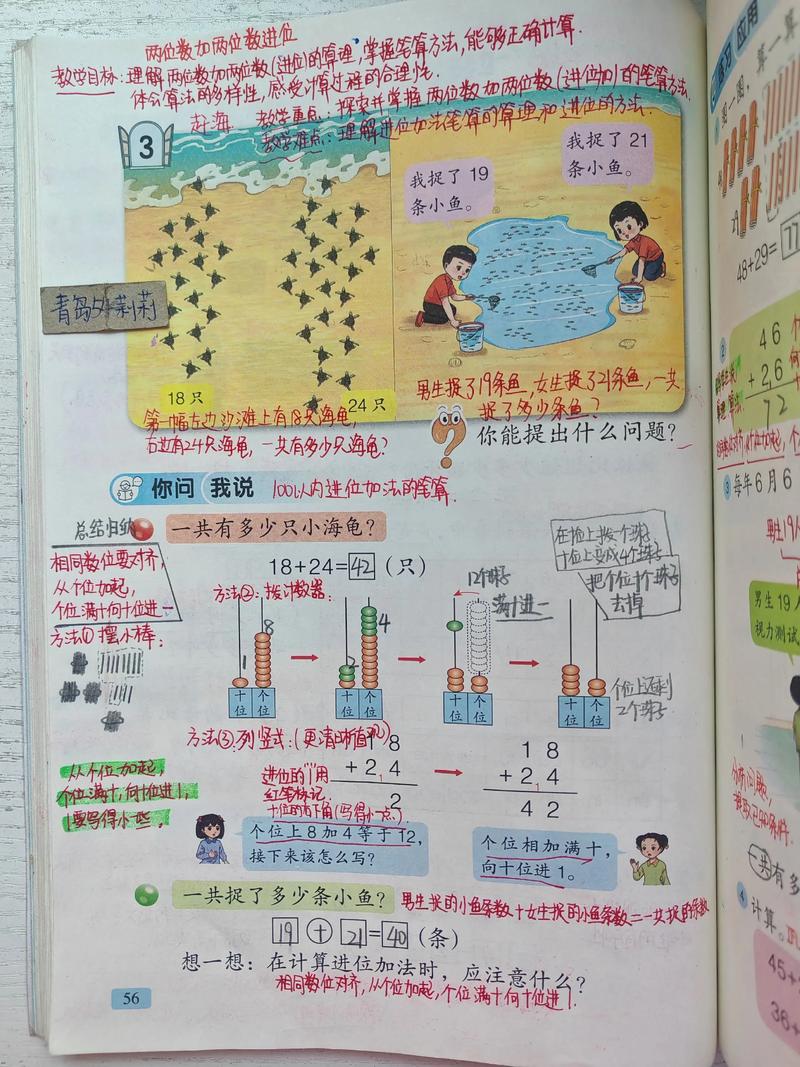 两位数加两位数进位
教学目标：理解两位数加两位数(进位)的算理，掌握笔算方法，能够正确计算.
体会算法的多样性，感受计算过程的合理性.
赶海 教学重点：探索并掌握两位数加两位数(进位加)的笔算方法.
教学难点：理解进位加法笔算的算理和进位的方法.
3
我捉了 19
条小鱼。
我捉了 21
条小鱼。
青岛
18 只
24 只
男生捉了19条鱼，女生捉了21条鱼，一共
捉了多少条鱼？
第一幅左边沙滩上有18只海龟，
右边有24只海龟，一共有多少只海龟？
你能提出什么问题？
你问 我说
100以内进位加法的笔算.
总结归纳
一共有多少只小海龟？
相同数位要对齐，
从个位加起，
个位满十向十位进一
18+24=42（只）
方法②：拨计数器：
12个珠子
满十进一
在十位上拨个珠子
十位上变成4个珠子
把个位十个珠子
去掉
方法① 摆小棒：
1 8
2 4
十位 个位
十位 个位
十位 个位
十位 个位
个位上还剩
2个珠子
方法③：列竖式：(更清晰直观)
1 8
+ 2 4
2
1 8
+ 2 1 4
4 2
进位的"1"用
红笔标记.
十位的右下角(写得小一点.)
从个位加起，
个位满十，向十位进1，
1要写得小些。
个位上 8 加 4 等于 12，
接下来该怎么写？
个位相加满十，
向十位进 1。
一共捉了多少条小鱼？
男生捉的小鱼条数+女生捉的小鱼条数=一共捉的条数
19 + 21 = 40（条）
想一想：在计算进位加法时，应注意什么？
相同数位对齐，从个位加起，个位满十向十位进1.
56
应用
48+29=
②
4 6
+ 2 6
7 2
③ 每年 6 月 6
男生19
男生 19
视力测试
分析问题，
一共有多
④ 计算。
45+
36+